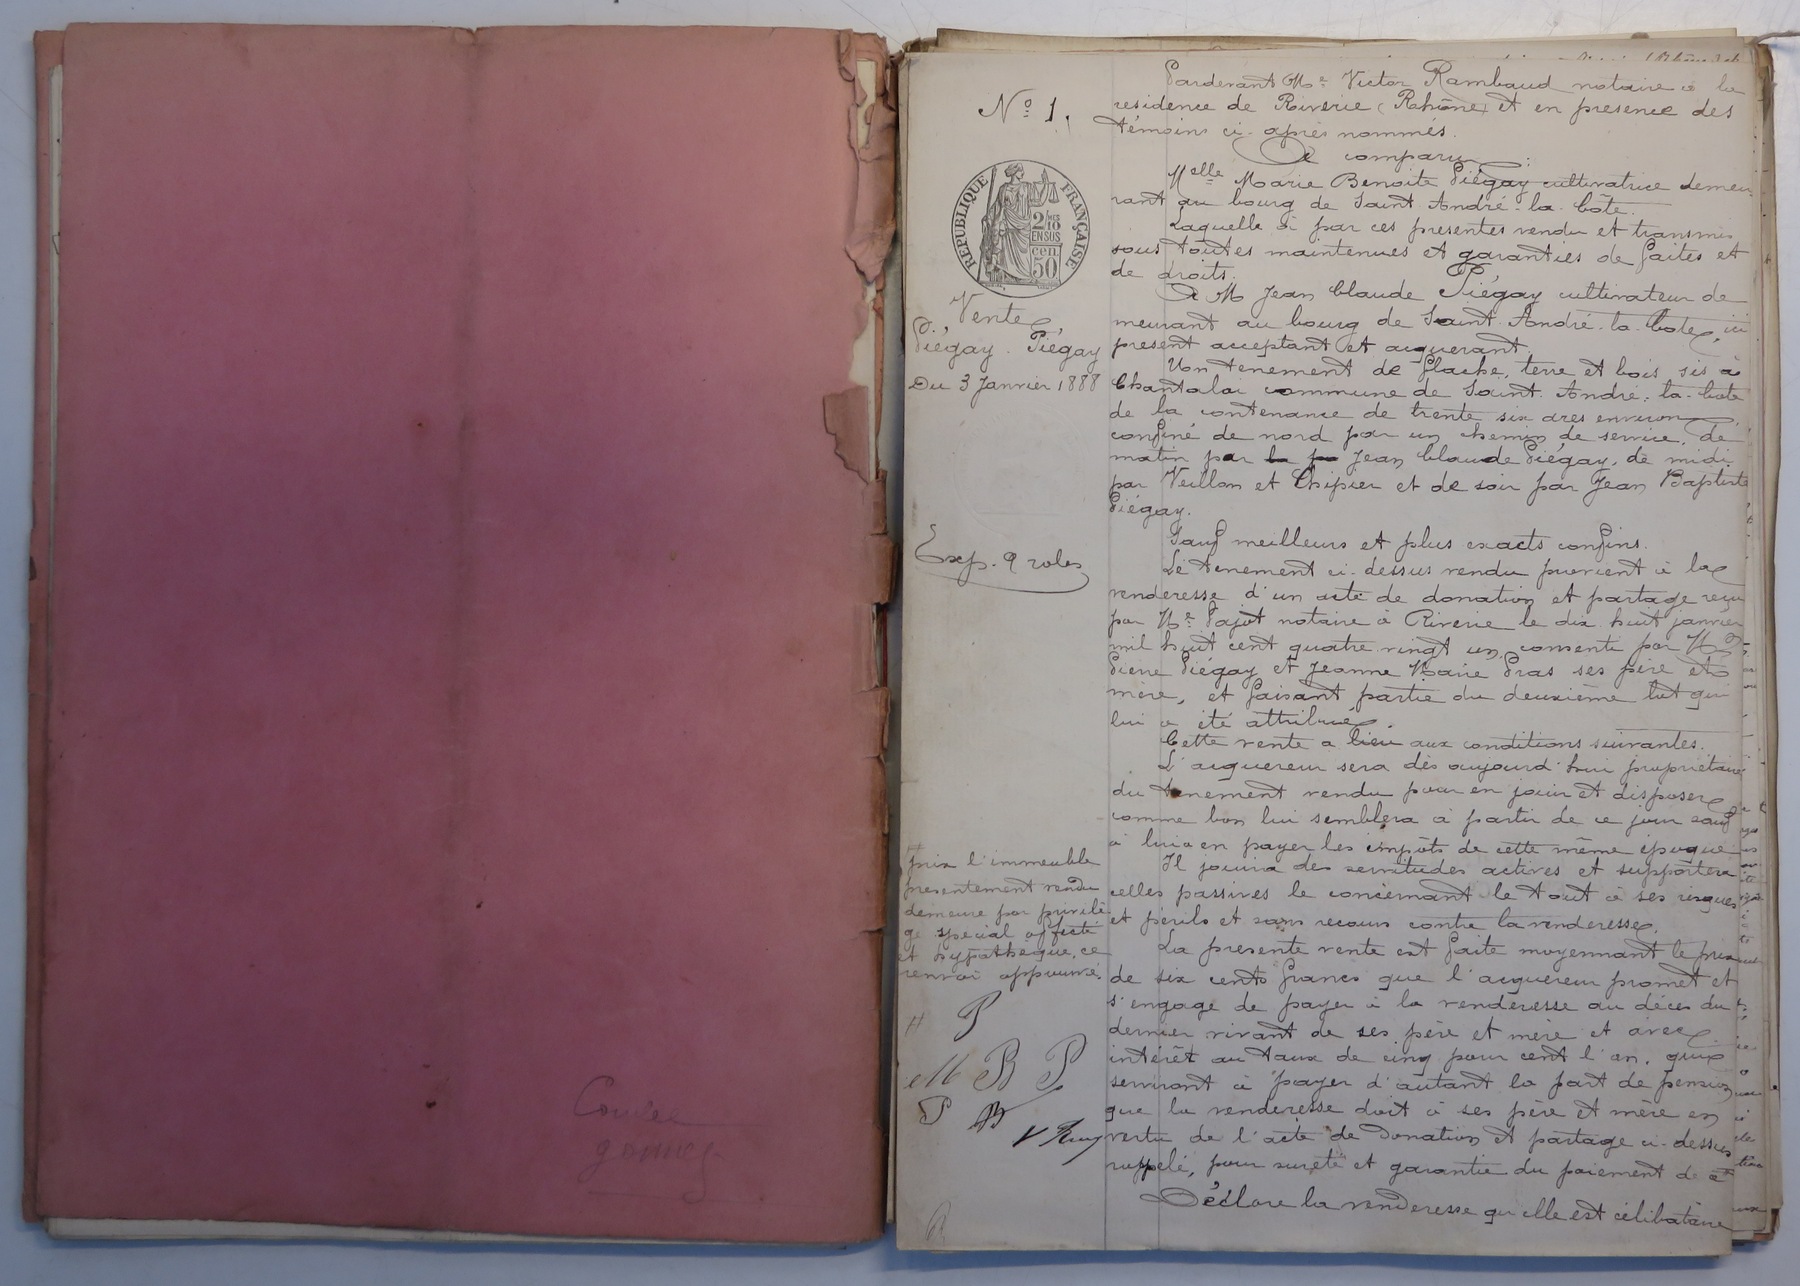 Couler
gommes
Nº 1.
RÉPUBLIQUE FRANÇAISE
2/10
EN SUS
cen.
50
Vente
Piégay. Piégay
Du 3 Janvier 1888
Exp. 9 roles
prix l'immeuble
presentement vendu
demeure par privilè
ge special affecté
et hypothèque, ce
renvoi approuvé.
P
M B P
P
Pardevant Me Victor Rambaud notaire à la
residence de Riverie (Rhône) et en presence des
témoins ci-après nommés.
A comparu :
Melle Marie Benoite Piégay cultivatrice demeu
rant au bourg de Saint-André-la-Côte.
Laquelle a par ces presentes vendu et transmis
sous toutes maintenues et garanties de faites et
de droits.
A M Jean Claude Piégay cultivateur de
meurant au bourg de Saint-André-la-Cote, ici
present acceptant et acquerant.
Un tenement de flache, terre et bois sis à
Chantalai commune de Saint-André-la-Cote
de la contenance de trente six ares environ
confiné de nord par un chemin de service, de
matin par Jean Claude Piégay, de midi
par Veillon et Chipier et de soir par Jean Baptiste
Piégay.
Sauf meilleurs et plus exacts confins.
Le tenement ci-dessus vendu provient à la
venderesse d'un acte de donation et partage reçu
par Me Pajot notaire à Riverie le dix huit janvier
mil huit cent quatre vingt un, consenti par M
Pierre Piégay et Jeanne Marie Gras ses père et
mère, et faisant partie du deuxième lot qui
lui a été attribué.
Cette vente a lieu aux conditions suivantes.
L'acquereur sera dès aujourd'hui propriétaire
du tenement vendu pour en jouir et disposer
comme bon lui semblera à partir de ce jour sauf
à lui à en payer les impôts de cette même époque
Il jouira des servitudes actives et supportera
celles passives le concernant le tout à ses risques
et périls et sans recours contre la venderesse.
La presente vente est faite moyennant le prix
de six cents francs que l'acquereur promet et
s'engage de payer à la venderesse au décès du
dernier vivant de ses père et mère et avec
intérêt au taux de cinq pour cent l'an, qui
serviront à payer d'autant la part de pension
que la venderesse doit à ses père et mère en
vertu de l'acte de Donation et partage ci-dessus
rappelé, pour sureté et garantie du paiement de ce
Déclare la venderesse qu'elle est célibataire